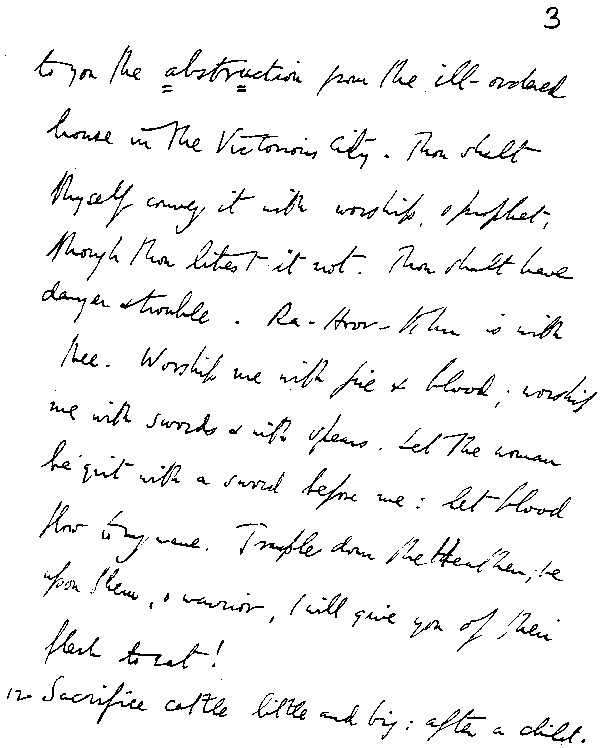 3
to you the abstruction from the ill-ordered
house in the Victorious City. Thou shalt
thyself convey it with worship, o prophet,
though thou likest it not. Thou shalt have
danger & trouble. Ra-Hoor-Khu is with
thee. Worship me with fire & blood; worship
me with swords & with spears. Let the woman
be girt with a sword before me: let blood
flow to my name. Trample down the Heathen; be
upon them, o warrior, I will give you of their
flesh to eat!
12 Sacrifice cattle little and big: after a child.